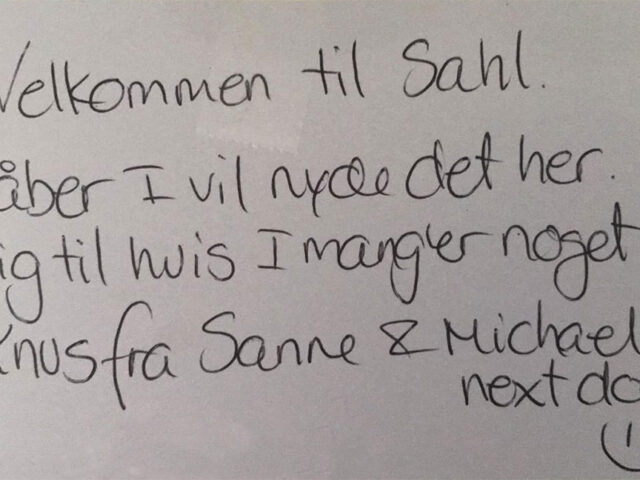 Velkommen til Sahl.
åber I vil nyde det her.
ig til hvis I mangler noget
Knus fra Sanne & Michael
next do